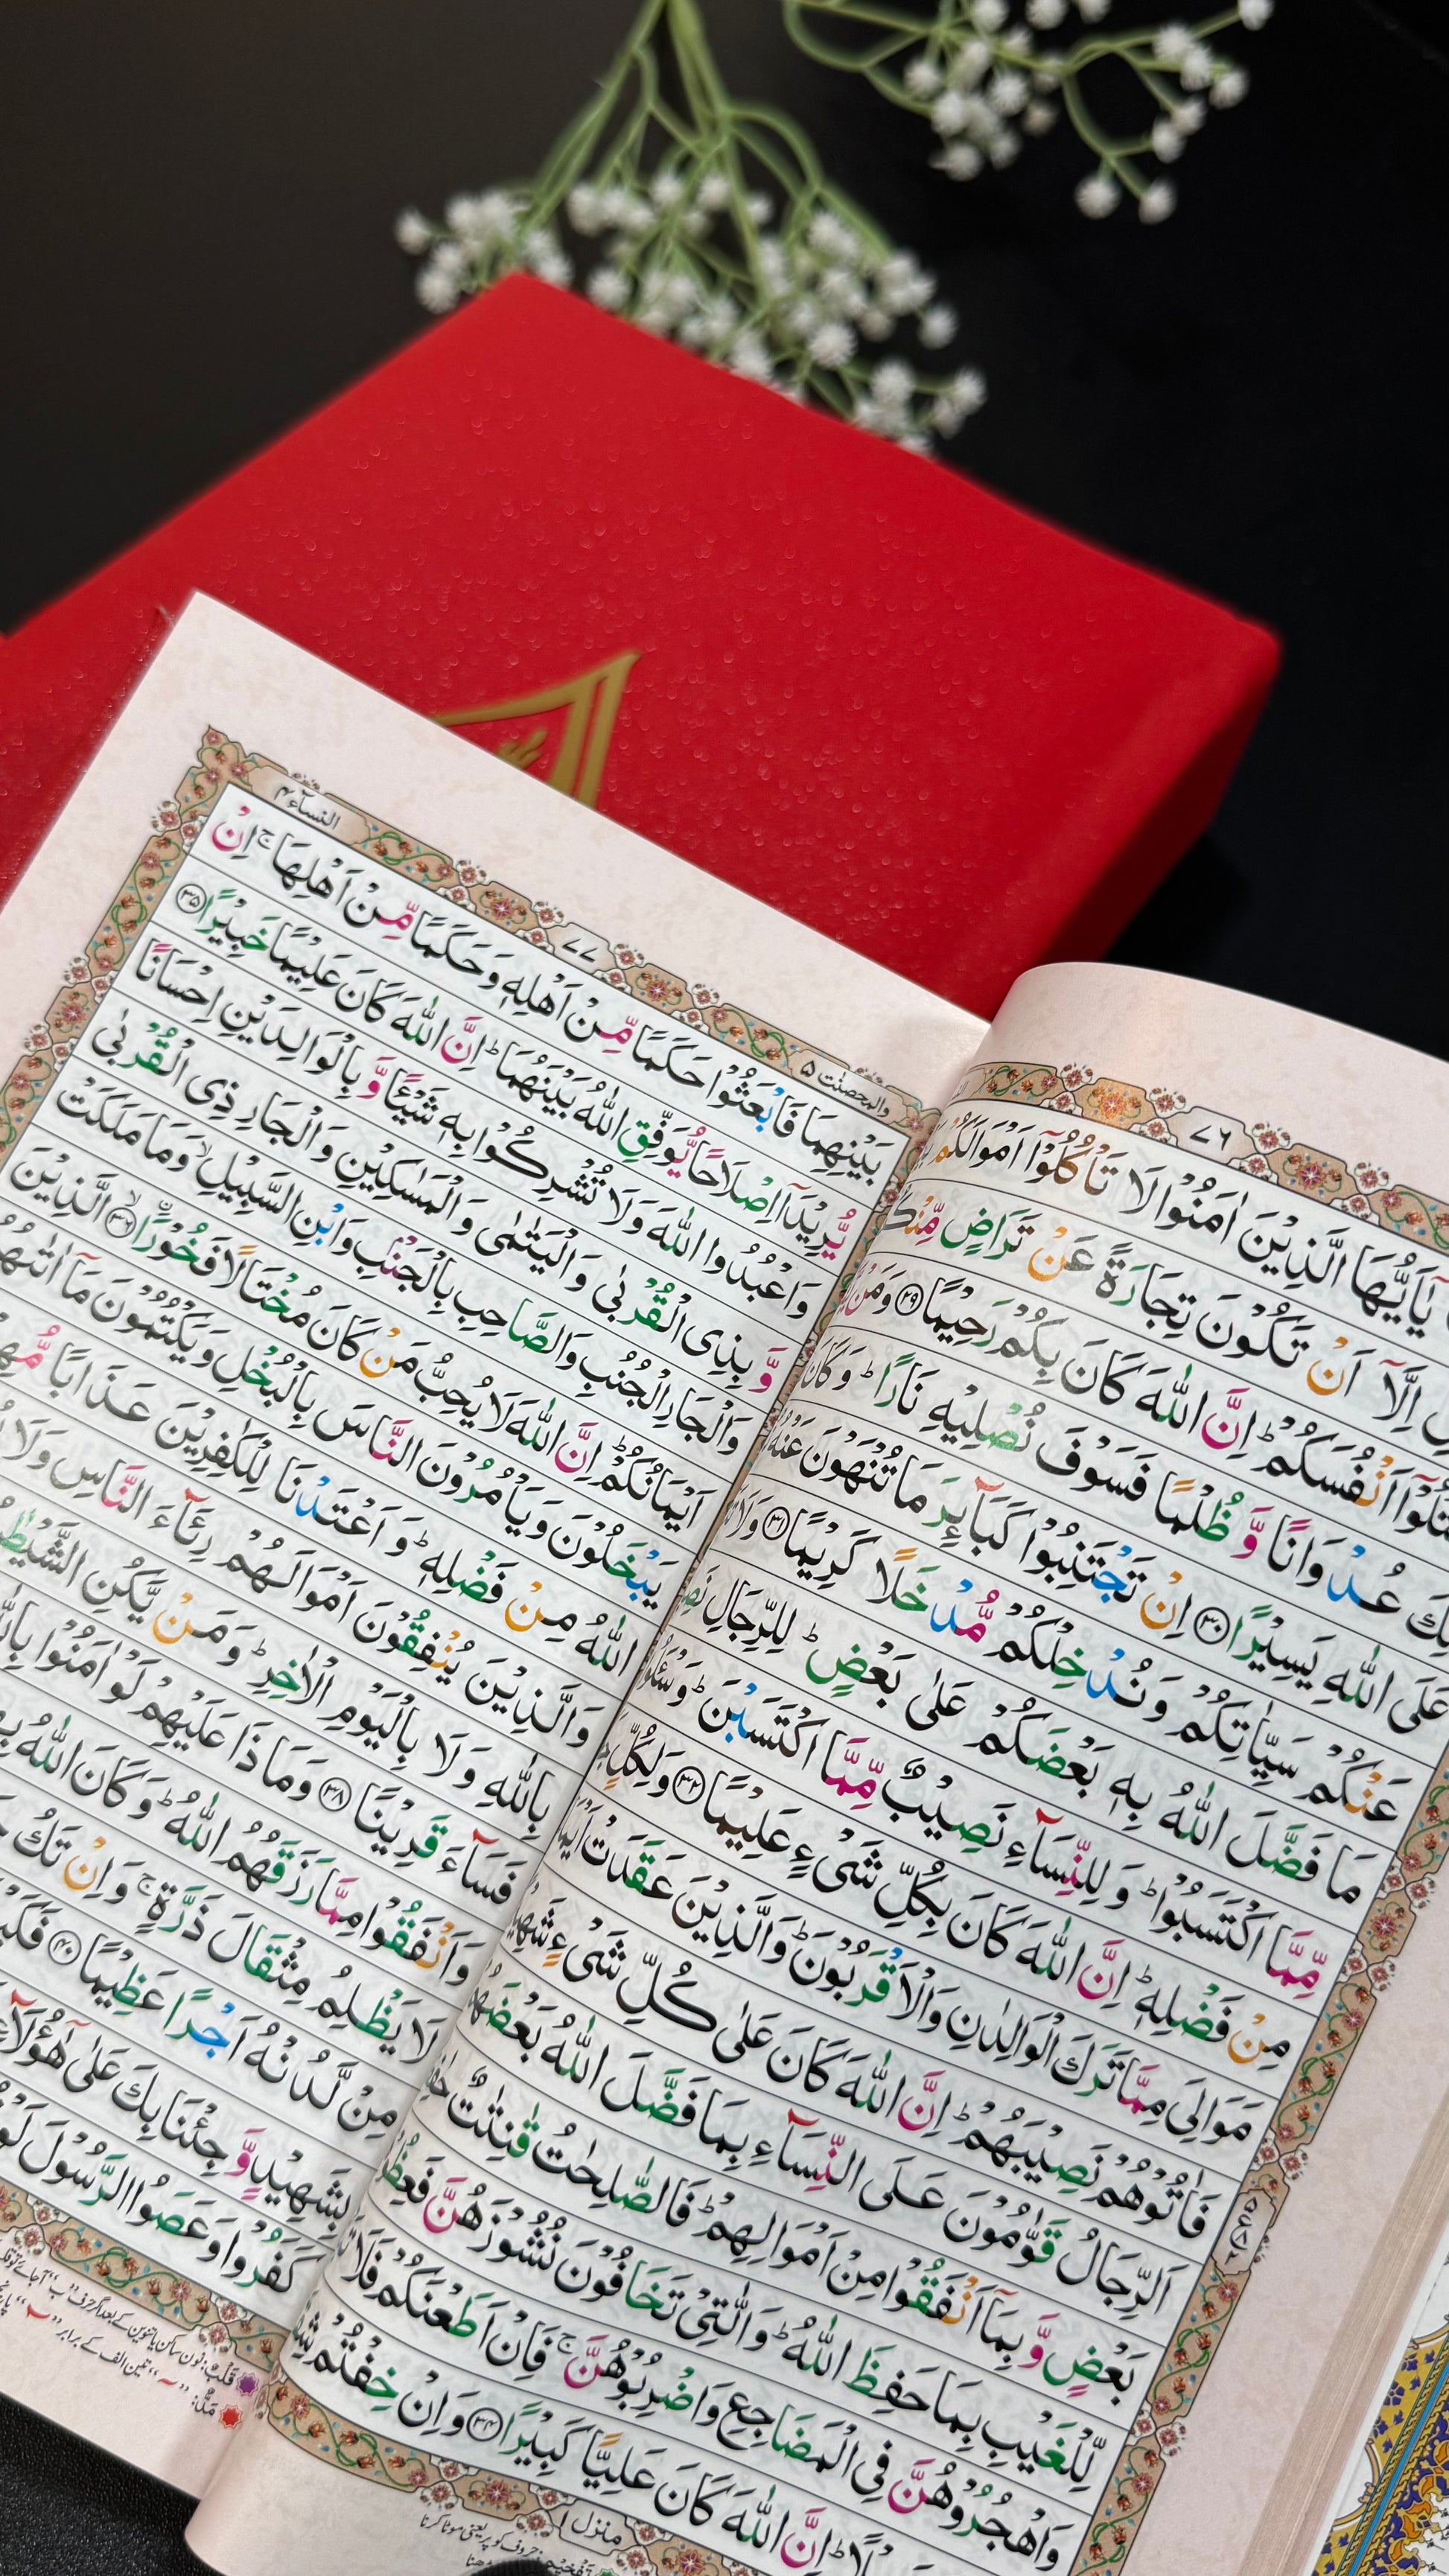 ٧٦
يٰۤاَيُّهَا الَّذِيْنَ اٰمَنُوْا لَا تَاْكُلُوْۤا اَمْوَالَكُمْ
اِلَّاۤ اَنْ تَكُوْنَ تِجَارَةً عَنْ تَرَاضٍ
اَنْفُسَكُمْ ؕ اِنَّ اللّٰهَ كَانَ بِكُمْ رَحِيْمًا ﴿۲۹﴾ وَمَنْ
عُدْوَانًا وَّ ظُلْمًا فَسَوْفَ نُصْلِيْهِ نَارًا ؕ وَكَانَ
عَلَى اللّٰهِ يَسِيْرًا ﴿۳۰﴾ اِنْ تَجْتَنِبُوْا كَبَآئِرَ مَا تُنْهَوْنَ عَنْهُ
عَنْكُمْ سَيِّاٰتِكُمْ وَنُدْخِلْكُمْ مُّدْخَلًا كَرِيْمًا ﴿۳۱﴾ وَلَا
مَا فَضَّلَ اللّٰهُ بِهٖ بَعْضَكُمْ عَلٰى بَعْضٍ ؕ لِلرِّجَالِ
مِّمَّا اكْتَسَبُوْا ؕ وَ لِلنِّسَآءِ نَصِيْبٌ مِّمَّا اكْتَسَبْنَ ؕ وَسْئَلُوا
مِنْ فَضْلِهٖ ؕ اِنَّ اللّٰهَ كَانَ بِكُلِّ شَىْءٍ عَلِيْمًا ﴿۳۲﴾ وَلِكُلٍّ
مَوَالِىَ مِمَّا تَرَكَ الْوَالِدٰنِ وَالْاَقْرَبُوْنَ ؕ وَالَّذِيْنَ عَقَدَتْ
فَاٰتُوْهُمْ نَصِيْبَهُمْ ؕ اِنَّ اللّٰهَ كَانَ عَلٰى كُلِّ شَىْءٍ
اَلرِّجَالُ قَوّٰمُوْنَ عَلَى النِّسَآءِ بِمَا فَضَّلَ اللّٰهُ بَعْضَهُمْ
بَعْضٍ وَّ بِمَاۤ اَنْفَقُوْا مِنْ اَمْوَالِهِمْ ؕ فَالصّٰلِحٰتُ قٰنِتٰتٌ
لِّلْغَيْبِ بِمَا حَفِظَ اللّٰهُ ؕ وَالّٰتِىْ تَخَافُوْنَ نُشُوْزَهُنَّ
وَاهْجُرُوْهُنَّ فِى الْمَضَاجِعِ وَاضْرِبُوْهُنَّ ۚ فَاِنْ اَطَعْنَكُمْ فَلَا
اِنَّ اللّٰهَ كَانَ عَلِيًّا كَبِيْرًا ﴿۳۴﴾ وَاِنْ خِفْتُمْ
منزل ۱
والمحصنٰت ۵
٧٧
النسآء ۴
بَيْنِهِمَا فَابْعَثُوْا حَكَمًا مِّنْ اَهْلِهٖ وَحَكَمًا مِّنْ اَهْلِهَا ۚ اِنْ
يُّرِيْدَاۤ اِصْلَاحًا يُّوَفِّقِ اللّٰهُ بَيْنَهُمَا ؕ اِنَّ اللّٰهَ كَانَ عَلِيْمًا خَبِيْرًا ﴿۳۵﴾
وَاعْبُدُوا اللّٰهَ وَلَا تُشْرِكُوْا بِهٖ شَيْئًا وَّ بِالْوَالِدَيْنِ اِحْسَانًا
وَّ بِذِى الْقُرْبٰى وَالْيَتٰمٰى وَالْمَسٰكِيْنِ وَالْجَارِ ذِى الْقُرْبٰى
وَالْجَارِ الْجُنُبِ وَالصَّاحِبِ بِالْجَنْۢبِ وَابْنِ السَّبِيْلِ ۙ وَمَا مَلَكَتْ
اَيْمَانُكُمْ ؕ اِنَّ اللّٰهَ لَا يُحِبُّ مَنْ كَانَ مُخْتَالًا فَخُوْرًا ﴿۳۶﴾ ۙ الَّذِيْنَ
يَبْخَلُوْنَ وَيَاْمُرُوْنَ النَّاسَ بِالْبُخْلِ وَيَكْتُمُوْنَ مَاۤ اٰتٰىهُمُ
اللّٰهُ مِنْ فَضْلِهٖ ؕ وَ اَعْتَدْنَا لِلْكٰفِرِيْنَ عَذَابًا
وَالَّذِيْنَ يُنْفِقُوْنَ اَمْوَالَهُمْ رِئَآءَ النَّاسِ وَلَا
بِاللّٰهِ وَلَا بِالْيَوْمِ الْاٰخِرِ ؕ وَمَنْ يَّكُنِ الشَّيْطٰنُ
فَسَآءَ قَرِيْنًا ﴿۳۸﴾ وَمَاذَا عَلَيْهِمْ لَوْ اٰمَنُوْا
وَاَنْفَقُوْا مِمَّا رَزَقَهُمُ اللّٰهُ ؕ وَكَانَ اللّٰهُ
لَا يَظْلِمُ مِثْقَالَ ذَرَّةٍ ۚ وَاِنْ تَكُ
مِنْ لَّدُنْهُ اَجْرًا عَظِيْمًا ﴿۴۰﴾ فَكَيْفَ
بِشَهِيْدٍ وَّ جِئْنَا بِكَ عَلٰى هٰٓؤُلَآءِ
كَفَرُوْا وَعَصَوُا الرَّسُوْلَ لَوْ